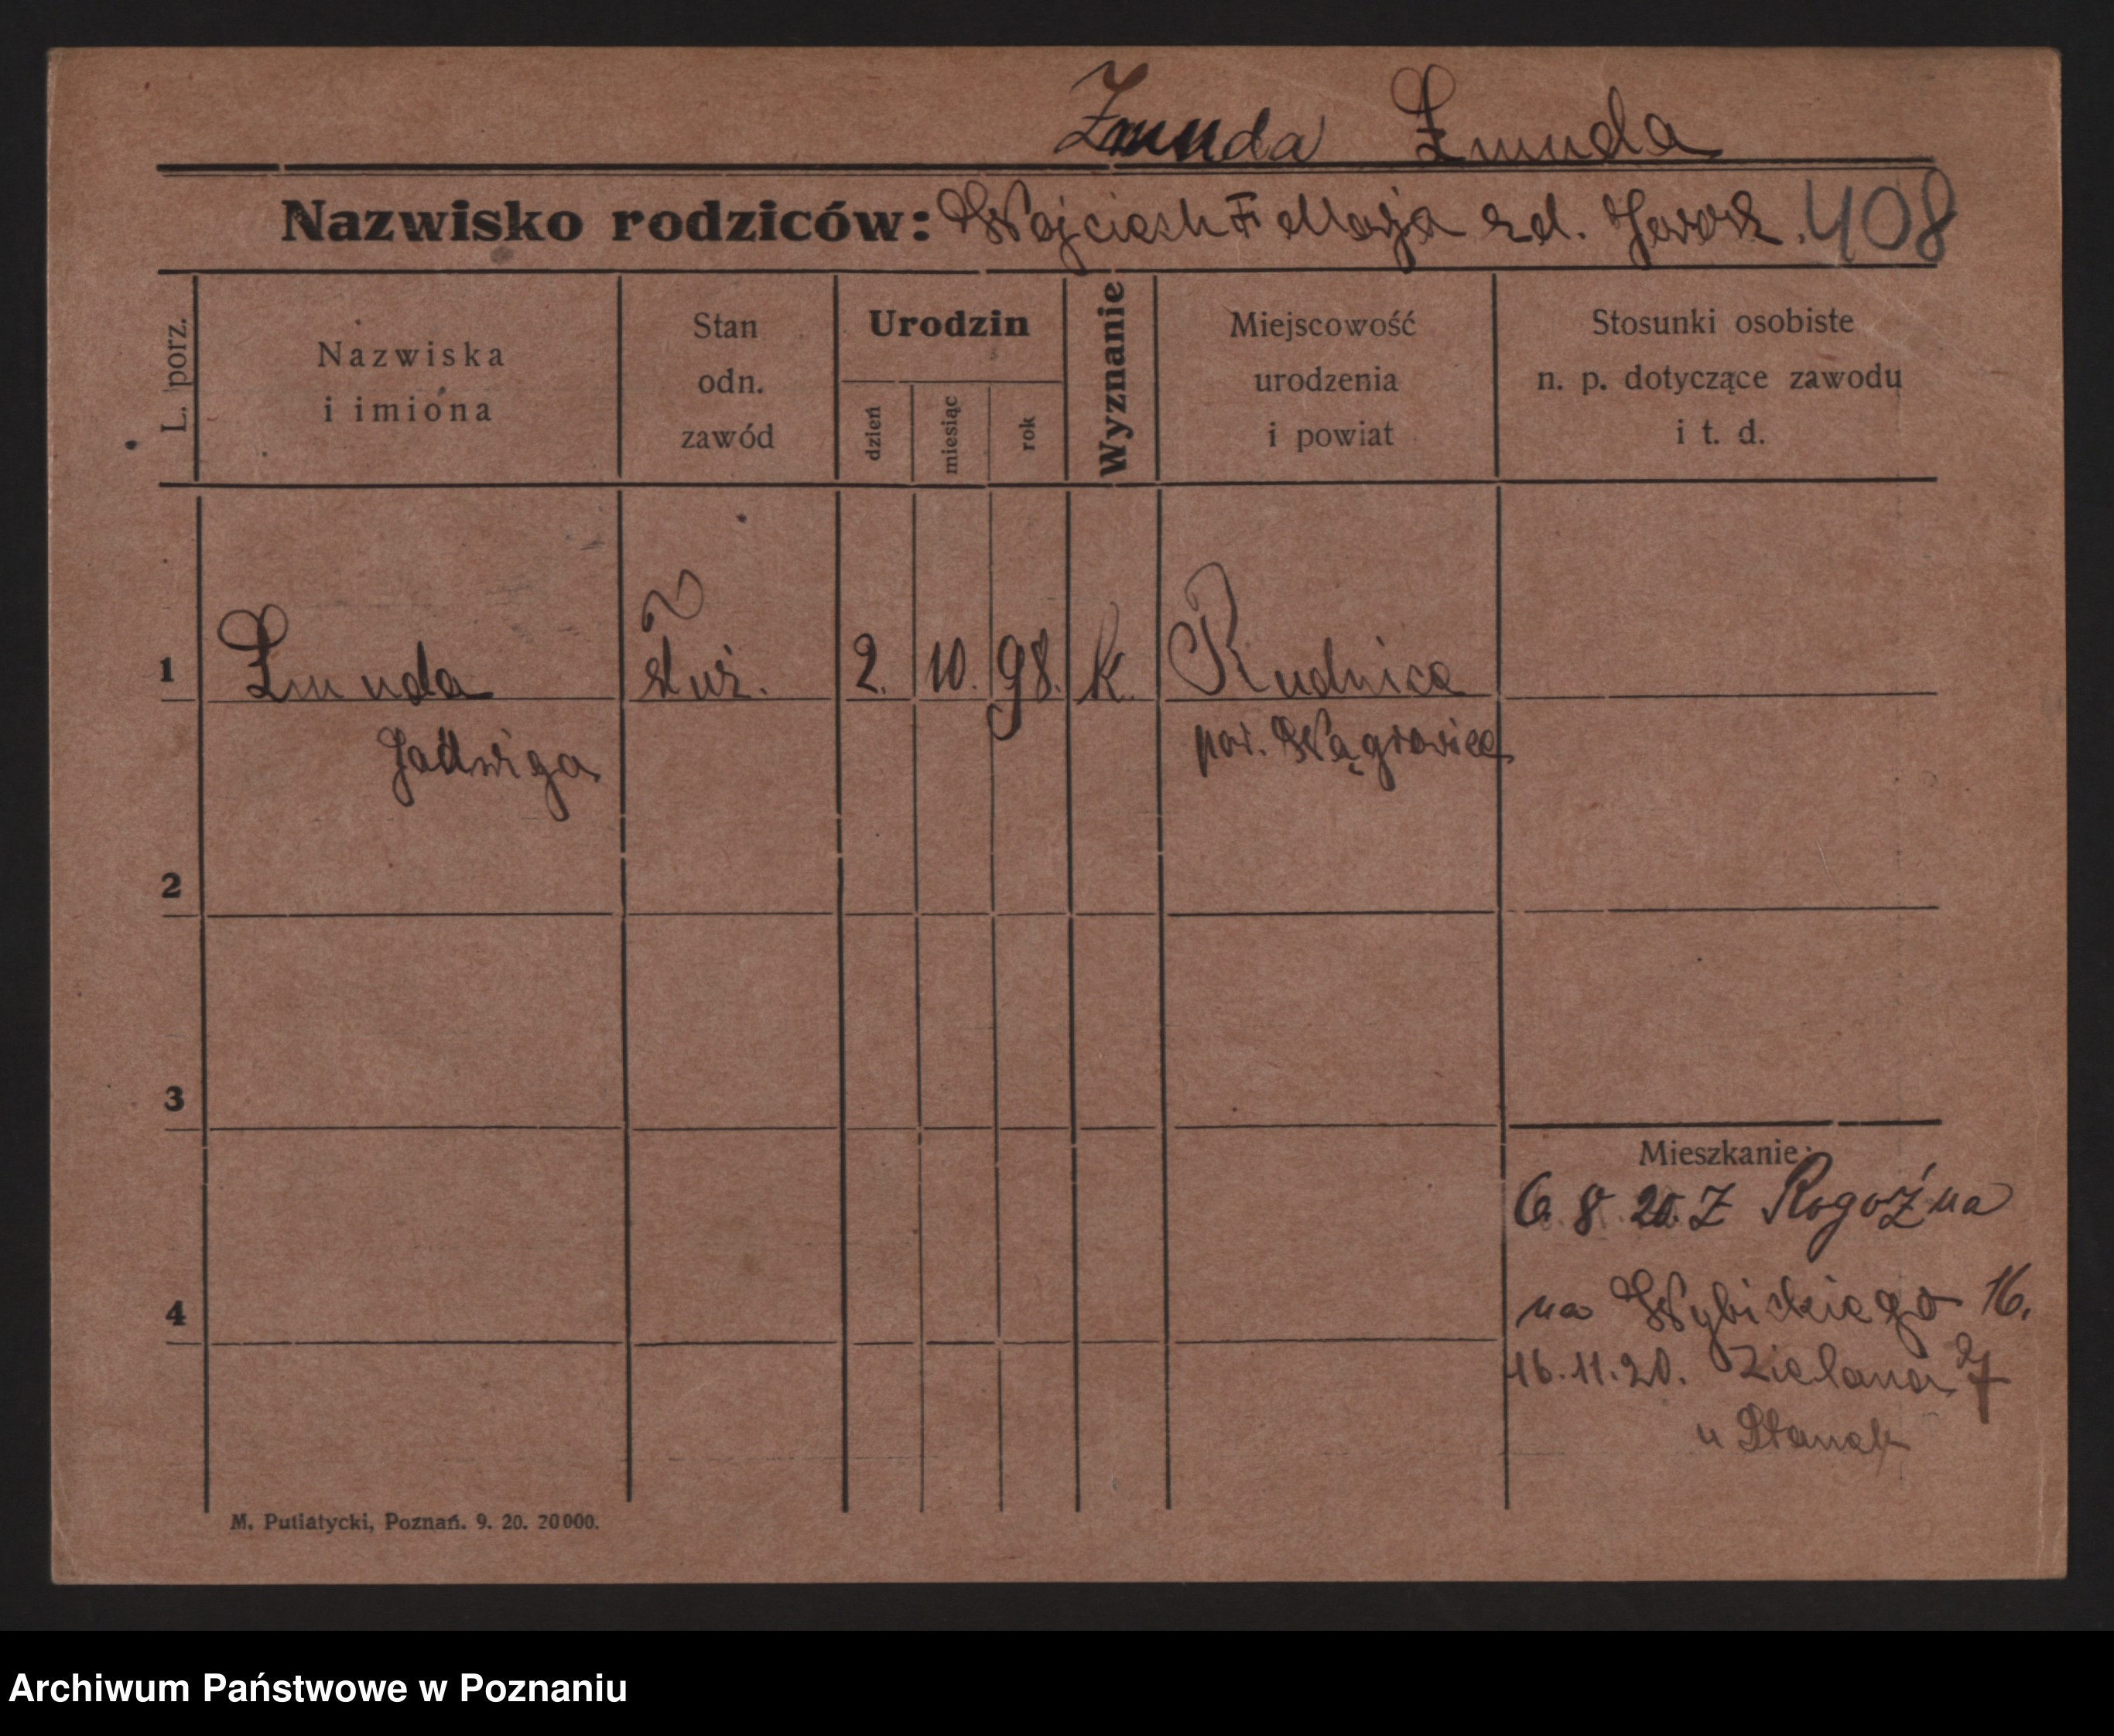 Zmuda Żmuda
Nazwisko rodziców: Wojciech Maryja zd. 408
L. porz.
Nazwiska
i imiona
Stan
odn.
zawód
Urodzin
dzień
miesiąc
rok
Wyznanie
Miejscowość
urodzenia
i powiat
Stosunki osobiste
n. p. dotyczące zawodu
i t. d.
1 Żmuda służ. 2. 10. 98. k. Rudnica
Jadwiga pow. Wągrowiec
2
3
Mieszkanie:
6. 8. 20. Z Rogoźna
na Wybickiego 16.
4
16.11.20. Zielona 27
u
M. Putiatycki, Poznań. 9. 20. 20000.
Archiwum Państwowe w Poznaniu